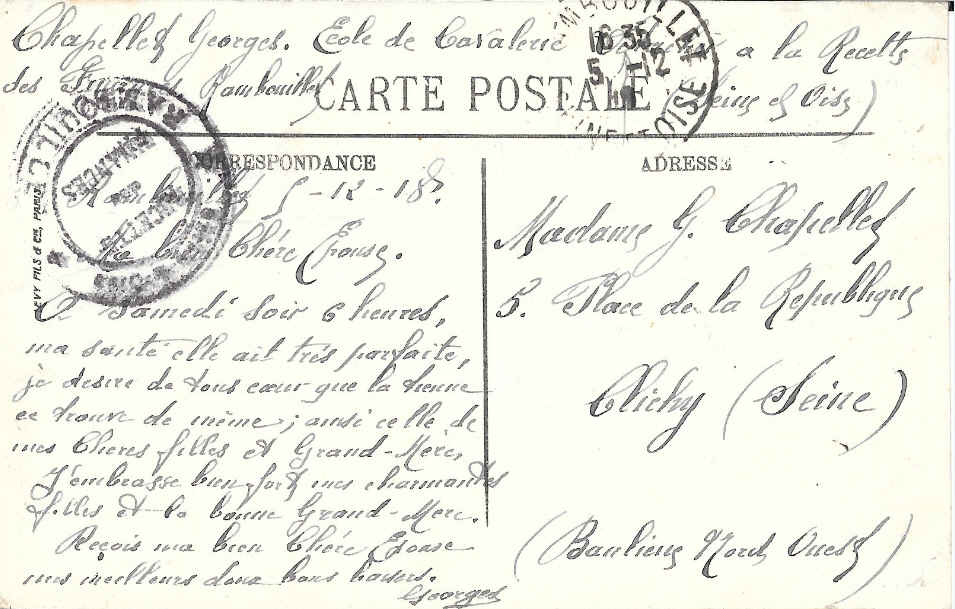 Chapellet Georges. École de Cavalerie a la Recette
des Rambouillet (Seine et Oise)
CARTE POSTALE
RAMBOUILLET
16 35
5 - 12
OISE
CORRESPONDANCE
ADRESSE
LEVY FILS & Cie, PARIS
Rambouillet 5-12-18.
Ma bien Chére Epouse.
Ce Samedi soir 6 heures,
ma santé elle ait trés parfaite,
je desire de tous cœur que la tienne
ce trouve de même; ainsi celle de
mes Cheres filles et Grand-Mère,
J'embrasse bien fort mes charmantes
filles et la bonne Grand-Mere.
Reçois ma bien Chére Epouse
mes meilleurs doux bons baisers.
Georges
Madame G. Chapellet
5. Place de la Republique
Clichy (Seine)
(Banlieue Nord Ouest)